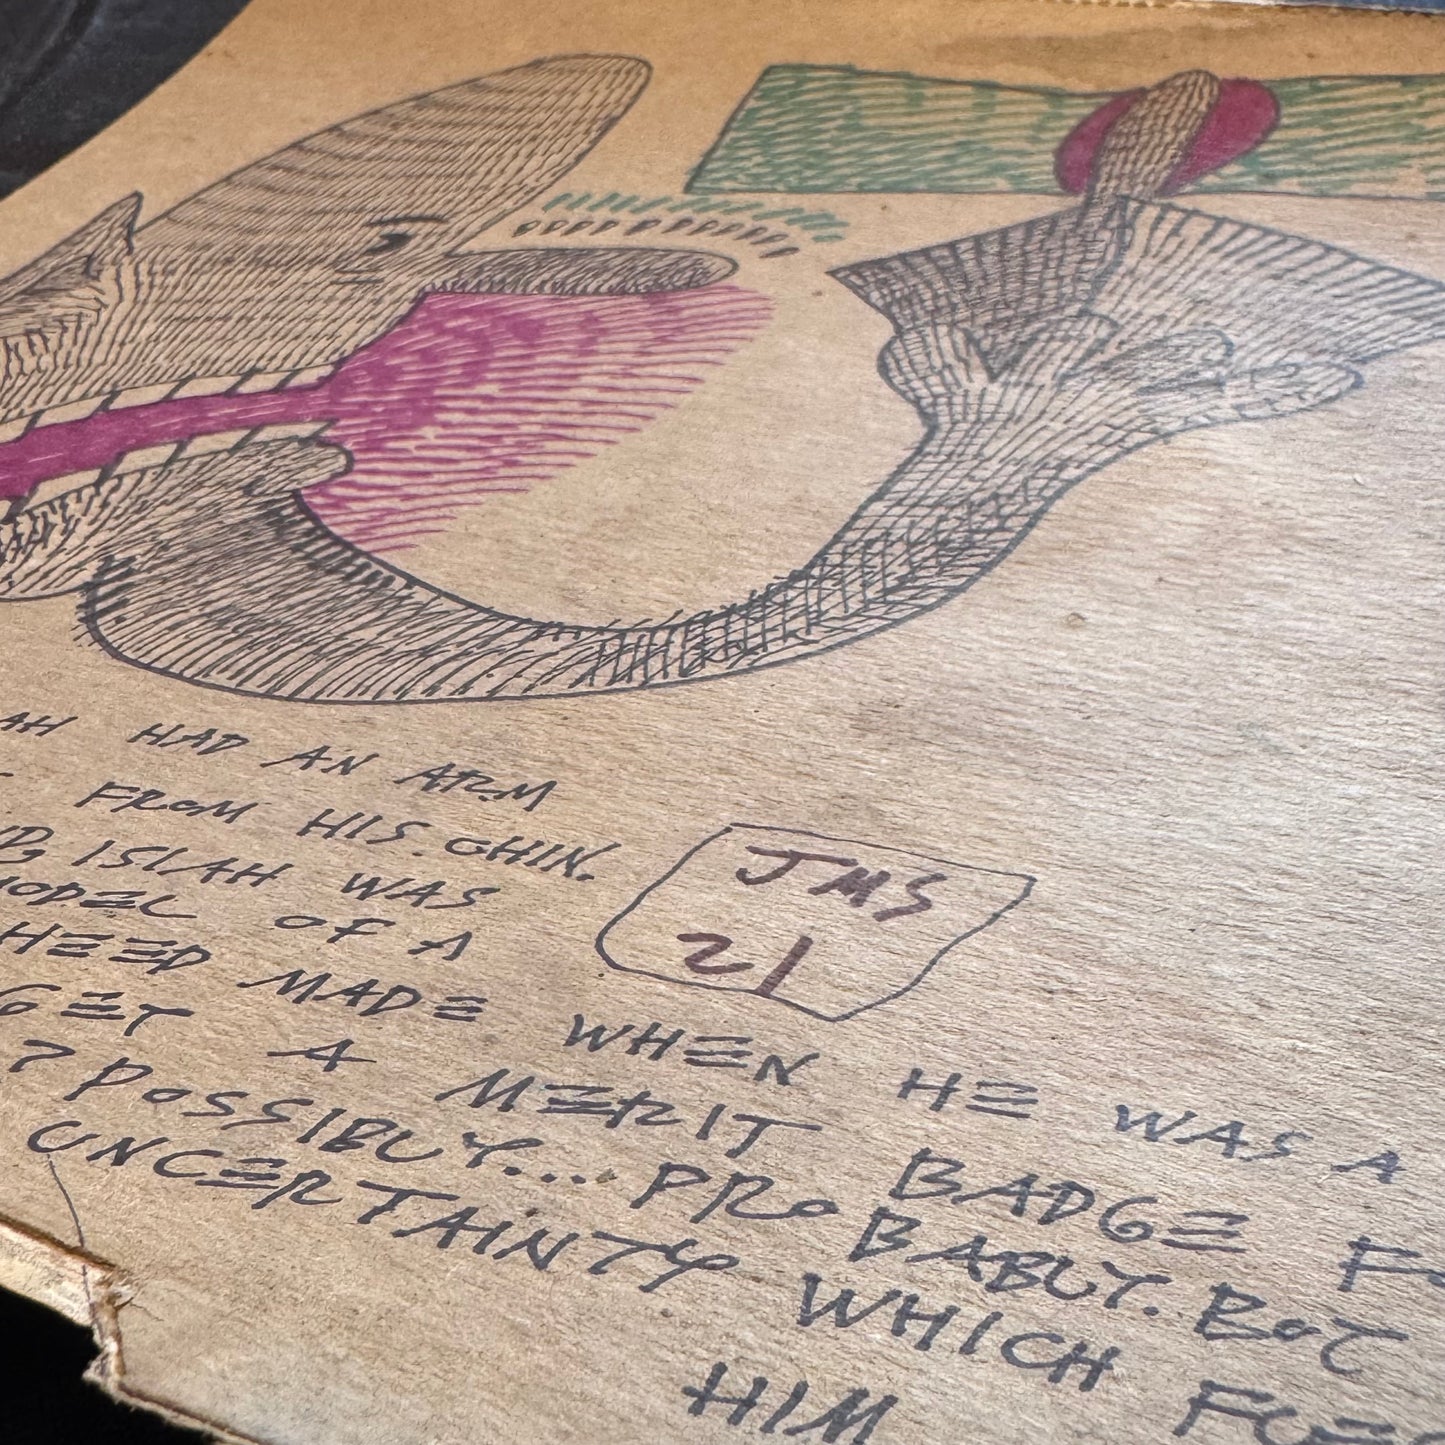 AH HAD AN ARM
FROM HIS CHIN.
ISIAH WAS
MODEL OF A
HEED MADE WHEN HE WAS A
GET A MERIT BADGE
? POSSIBLY... PROBABLY. BUT
UNCERTAINTY WHICH
HIM
JMS
21